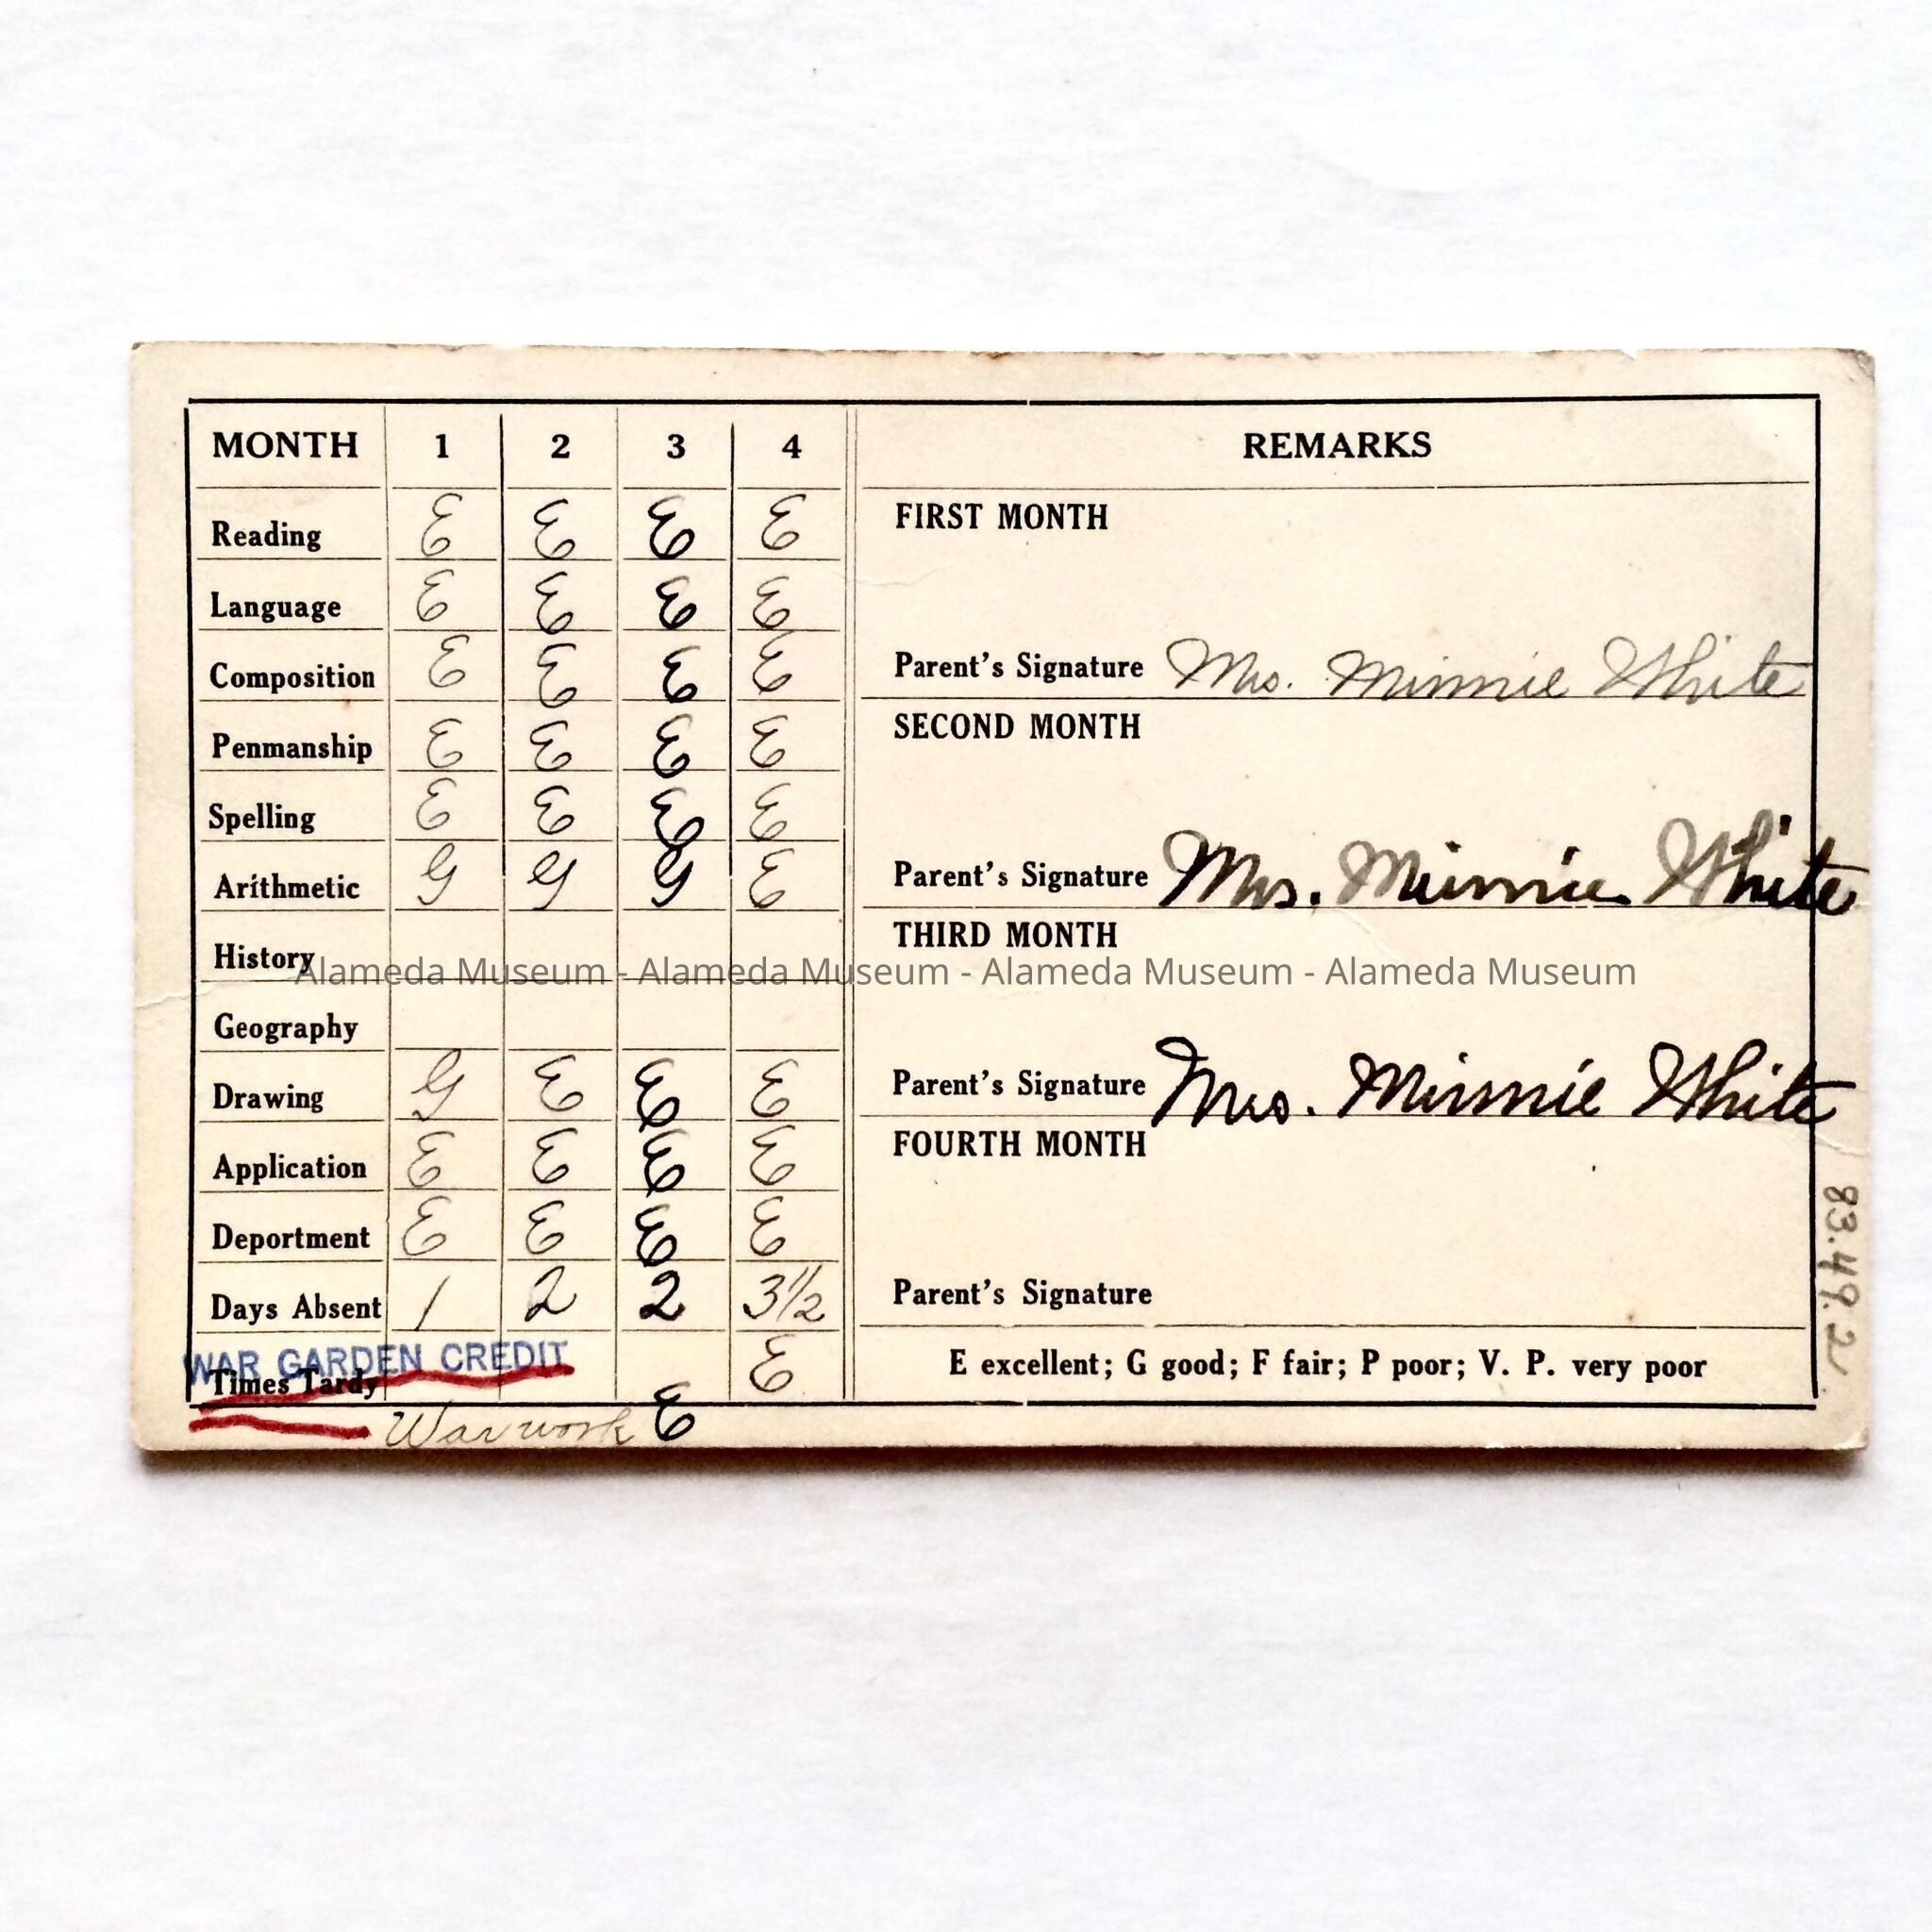 MONTH 1 2 3 4 REMARKS
Reading E E E E
FIRST MONTH
Language E E E E
Composition E E E E
Parent's Signature Mrs. Minnie White
Penmanship E E E E
SECOND MONTH
Spelling E E E E
Arithmetic G G G E
Parent's Signature Mrs. Minnie White
History
THIRD MONTH
Alameda Museum - Alameda Museum - Alameda Museum - Alameda Museum
Geography
Drawing G E E E
Parent's Signature Mrs. Minnie White
Application E E E E
FOURTH MONTH
Deportment E E E E
Days Absent 1 2 2 3½
Parent's Signature
WAR GARDEN CREDIT E
Times Tardy
E excellent; G good; F fair; P poor; V. P. very poor
War work E
83.49.2